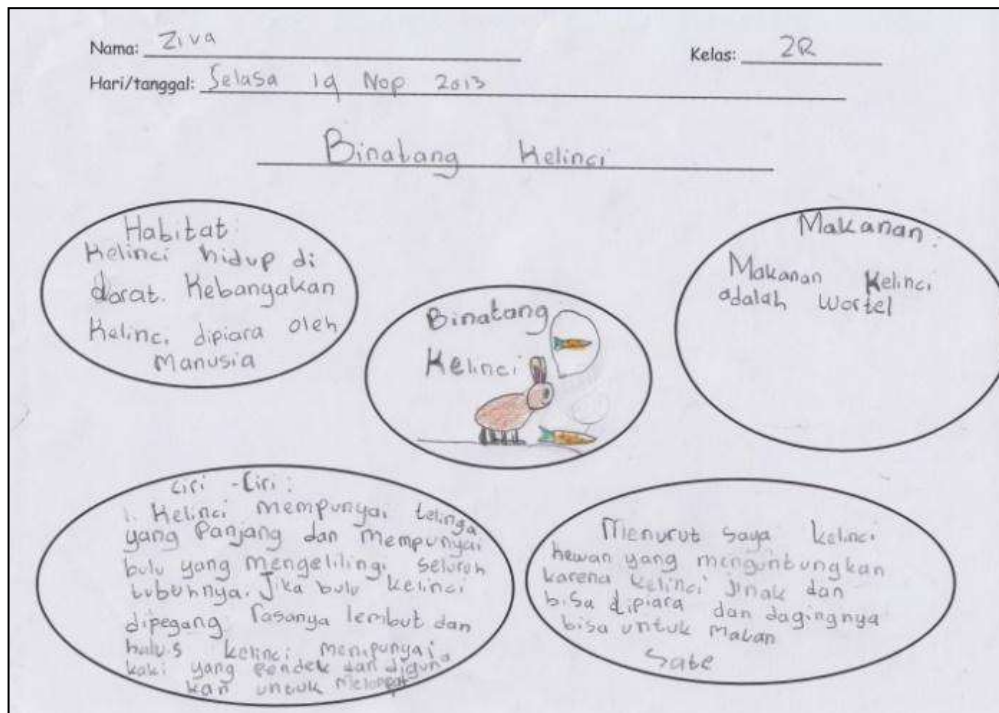 Nama: Ziva
Kelas: 2R
Hari/tanggal: Selasa 19 Nop 2013
Binatang Kelinci
Habitat:
Kelinci hidup di
darat. Kebanyakan
Kelinci dipiara oleh
Manusia
Makanan:
Makanan Kelinci
adalah wortel
Binatang
Kelinci
Ciri-Ciri:
1. Kelinci mempunyai telinga
yang Panjang dan mempunyai
bulu yang mengelilingi seluruh
tubuhnya. Jika bulu kelinci
dipegang rasanya lembut dan
halus kelinci mempunyai
kaki yang pendek dan diguna
kan untuk melompat
Menurut saya kelinci
hewan yang menguntungkan
karena kelinci jinak dan
bisa dipiara dan dagingnya
bisa untuk makan
Sate